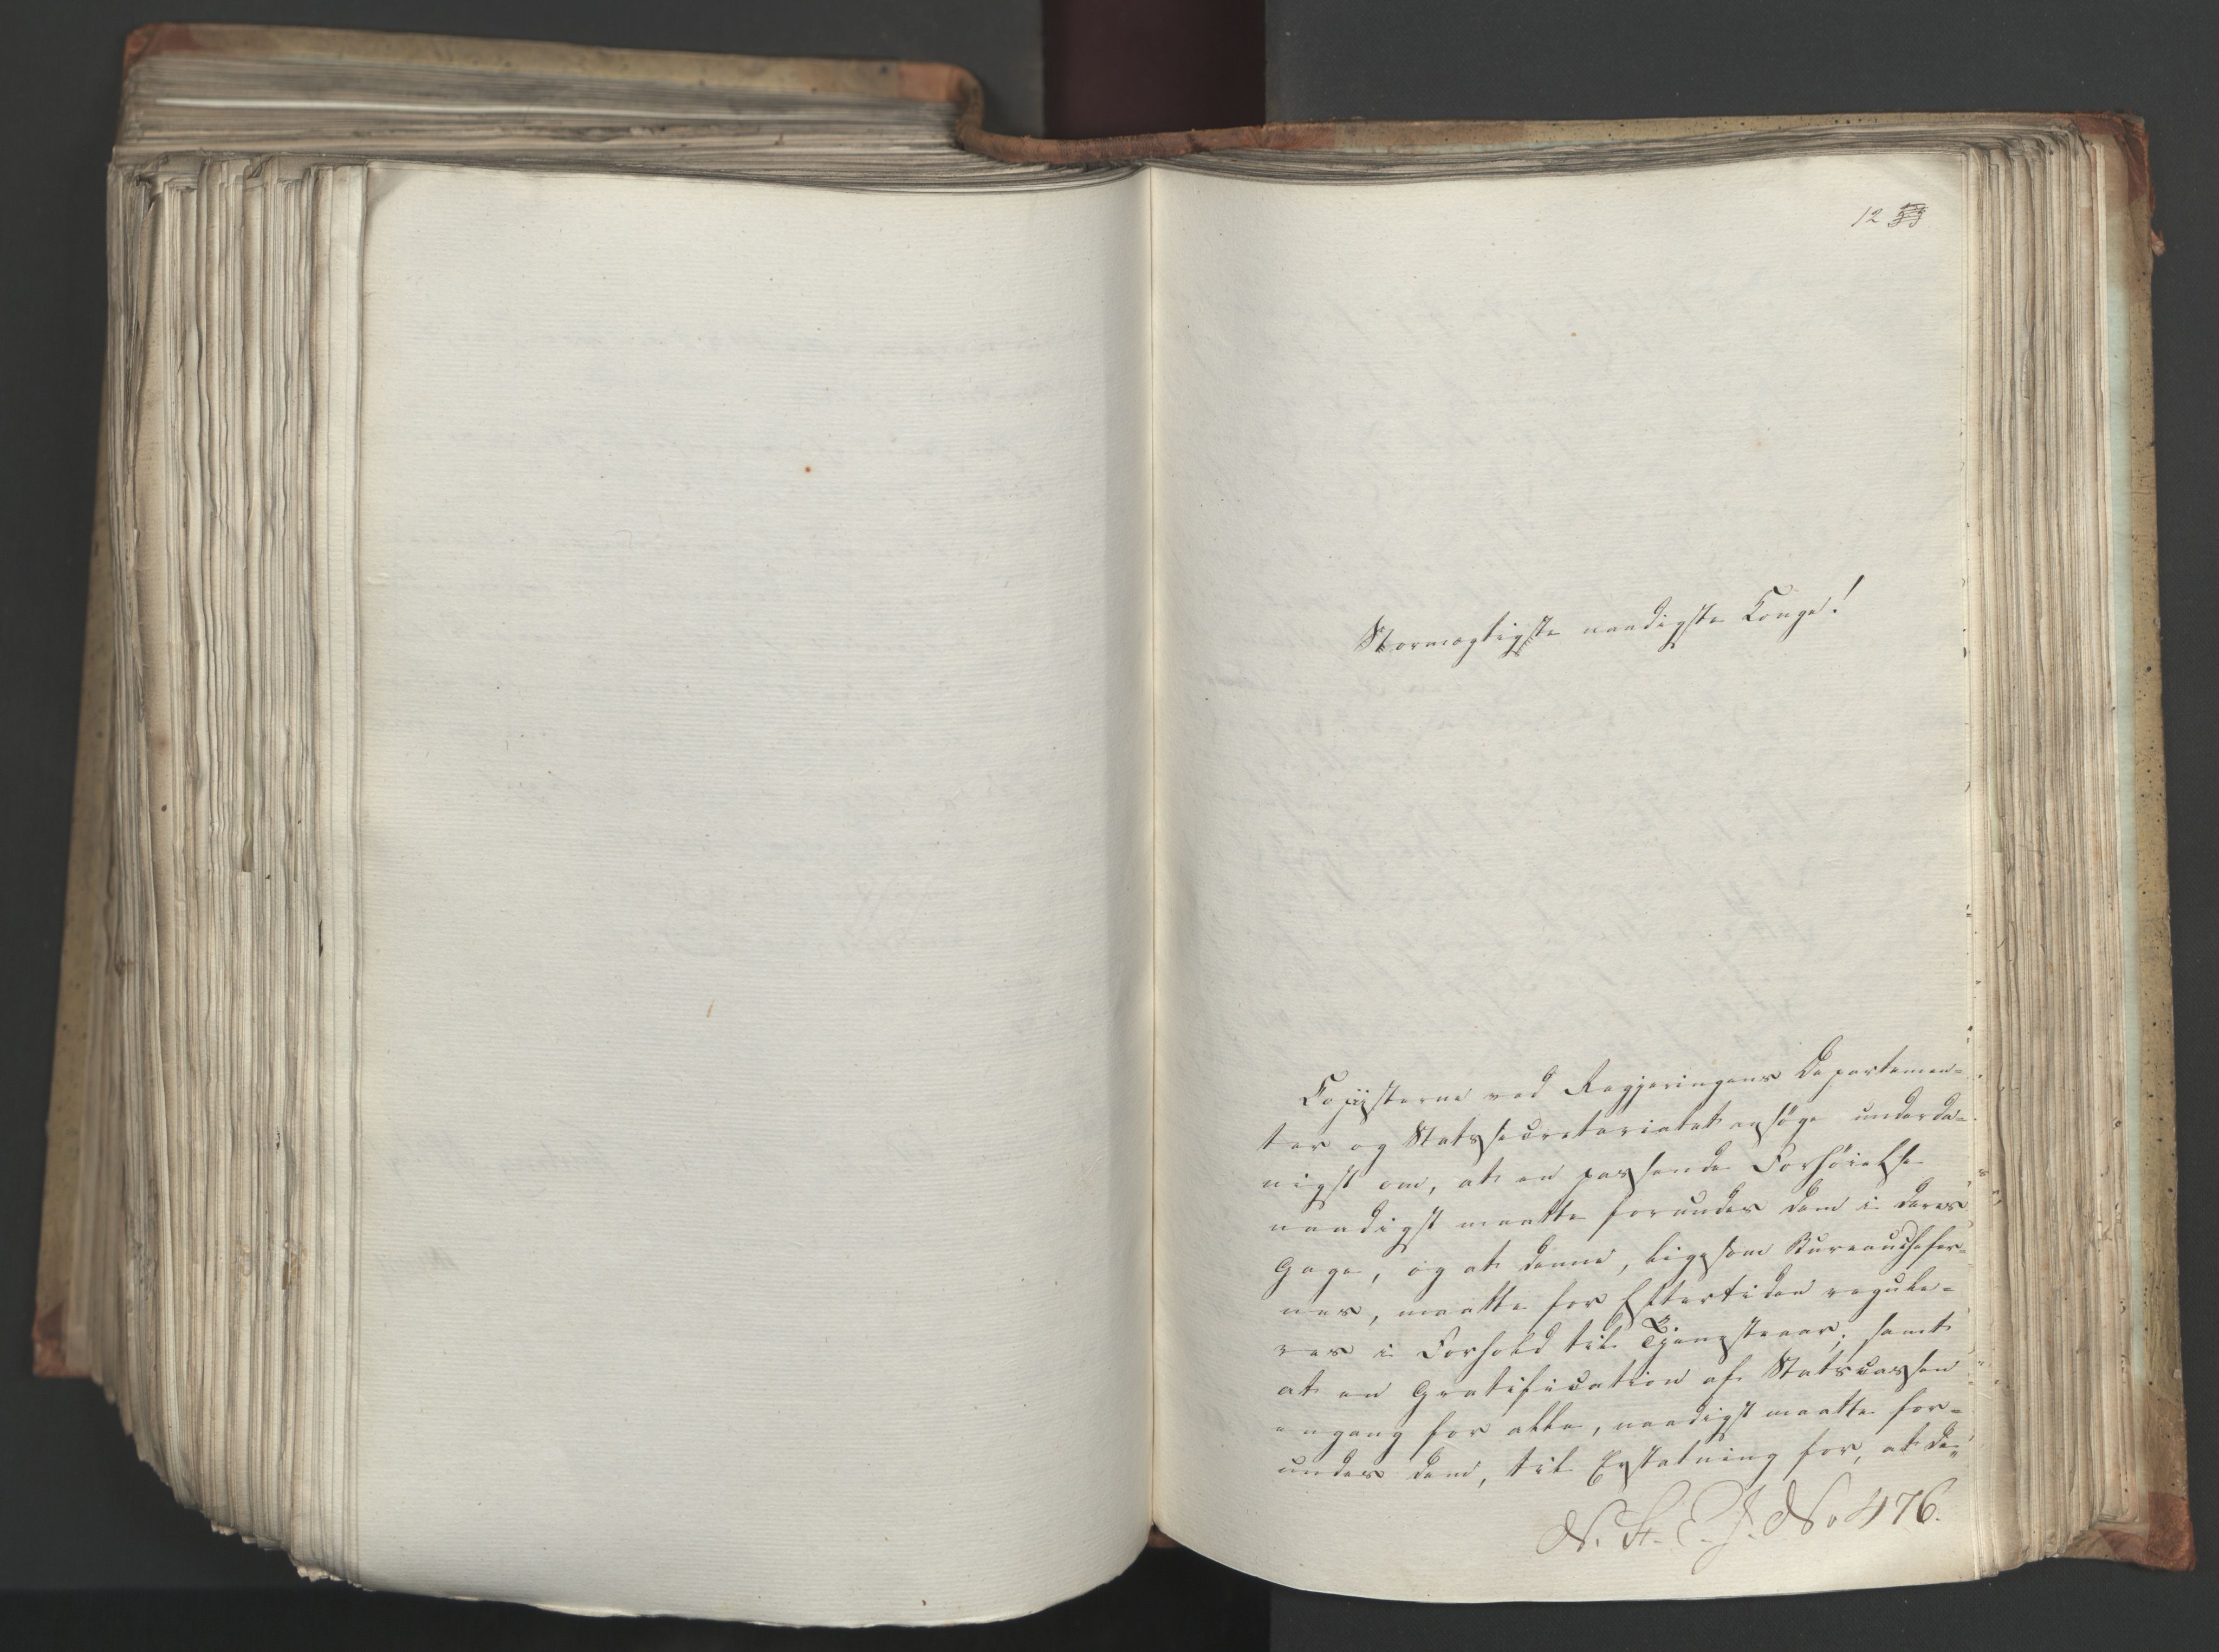 12
Stormægtigste naadigste Konge!
Copiisterne ved Regjeringens Departemen-
ter og Statssecretariatet ansøge underda-
nigst om, at en passende Forhøielse
naadigst maatte forundes dem i deres
Gage, og at denne, ligesom Bureauchefer-
nes, maatte for Eftertiden regule-
res i Forhold til Tjenstaar; samt
at en Gratification af Statscassen
engang for alle, naadigst maatte for-
undes dem, til Erstatning for, at de-
N. St. E. J. No 476.